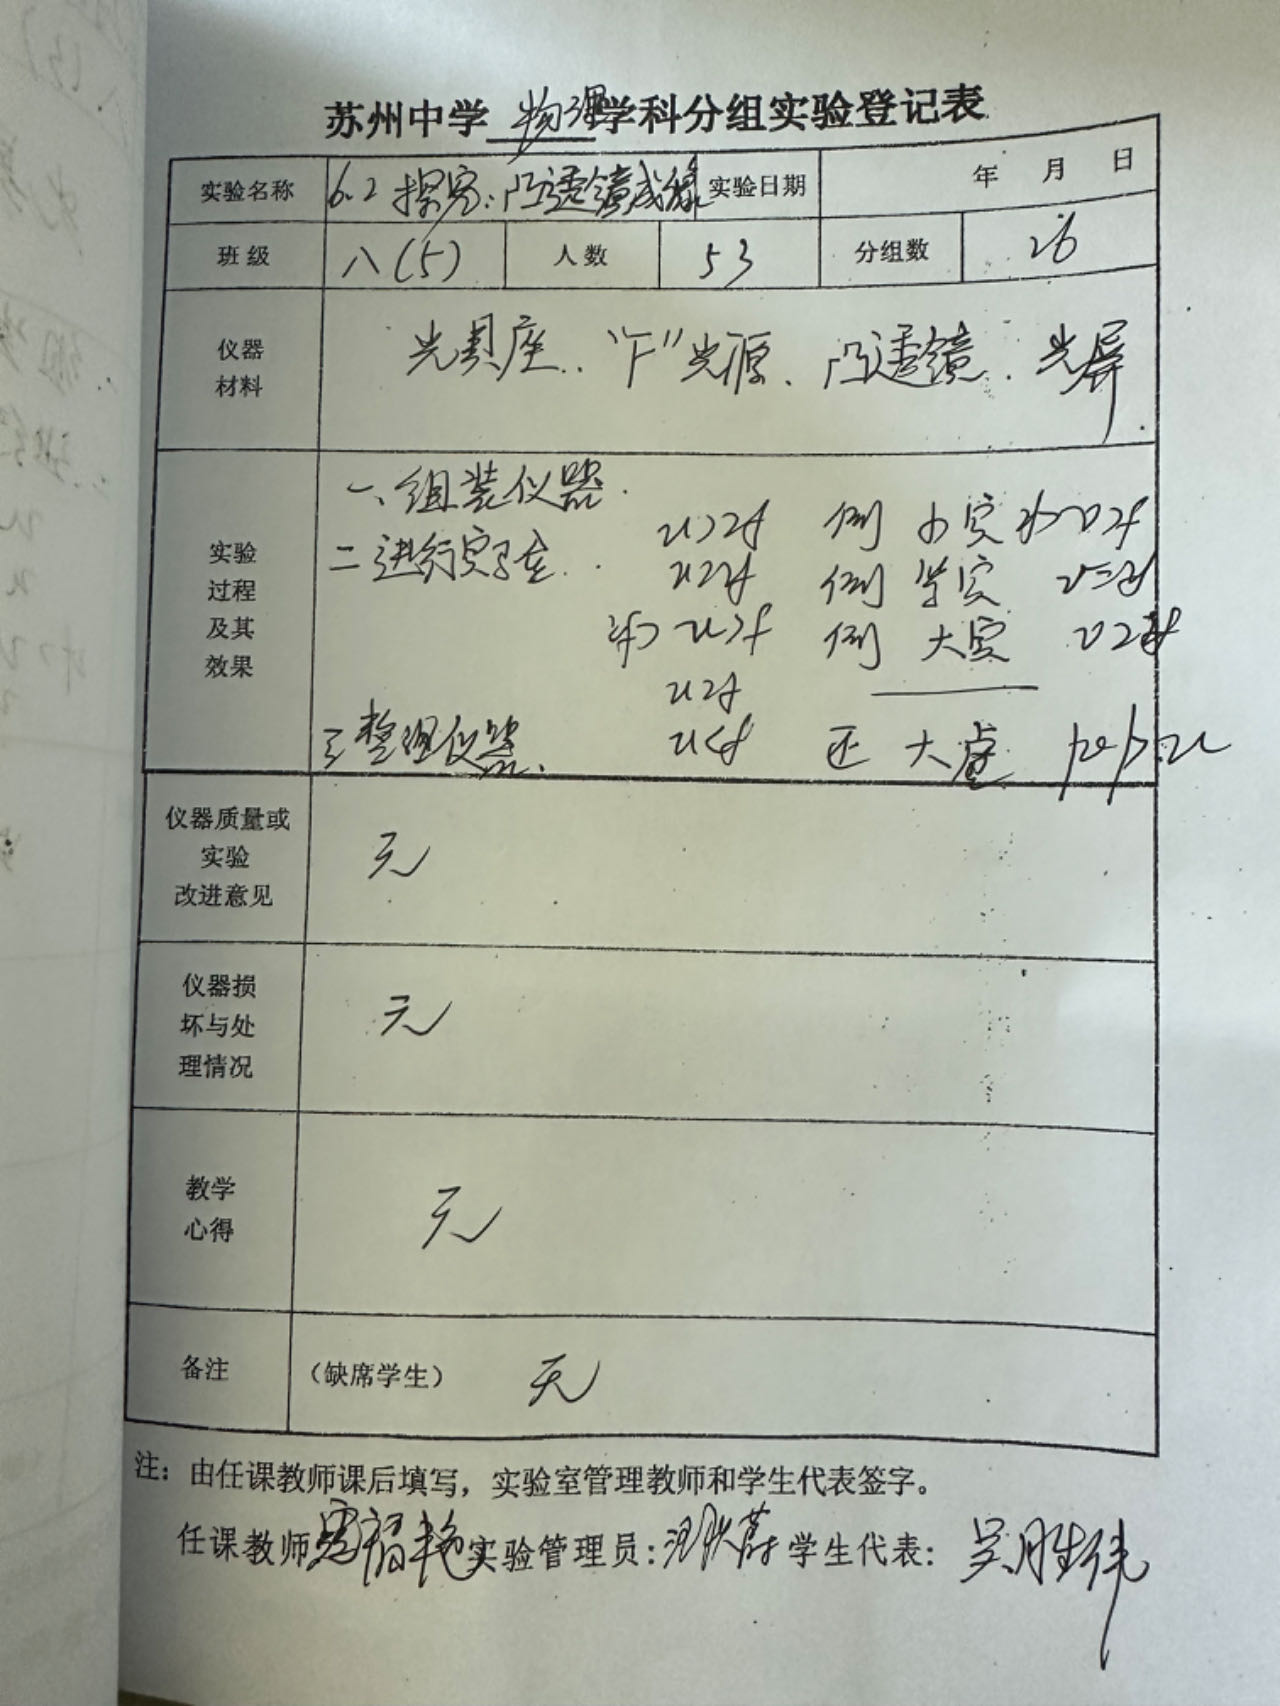 苏州中学 物理 学科分组实验登记表
实验名称 6.2 探究:凸透镜成像 实验日期 年 月 日
班级 八(5) 人数 53 分组数 26
仪器
材料
光具座、“F”光源、凸透镜、光屏.
实验
过程
及其
效果
一、组装仪器.
二进行实验.
u>2f 倒 小 实
u=2f 倒 等 实 v=2f
u>f 倒 大 实
u=f
三整理仪器.
u<f 正 大 虚
仪器质量或
实验
改进意见
无
仪器损
坏与处
理情况
无
教学
心得
无
备注 (缺席学生) 无
注:由任课教师课后填写,实验室管理教师和学生代表签字。
任课教师 实验管理员: 学生代表: 吴胜伟